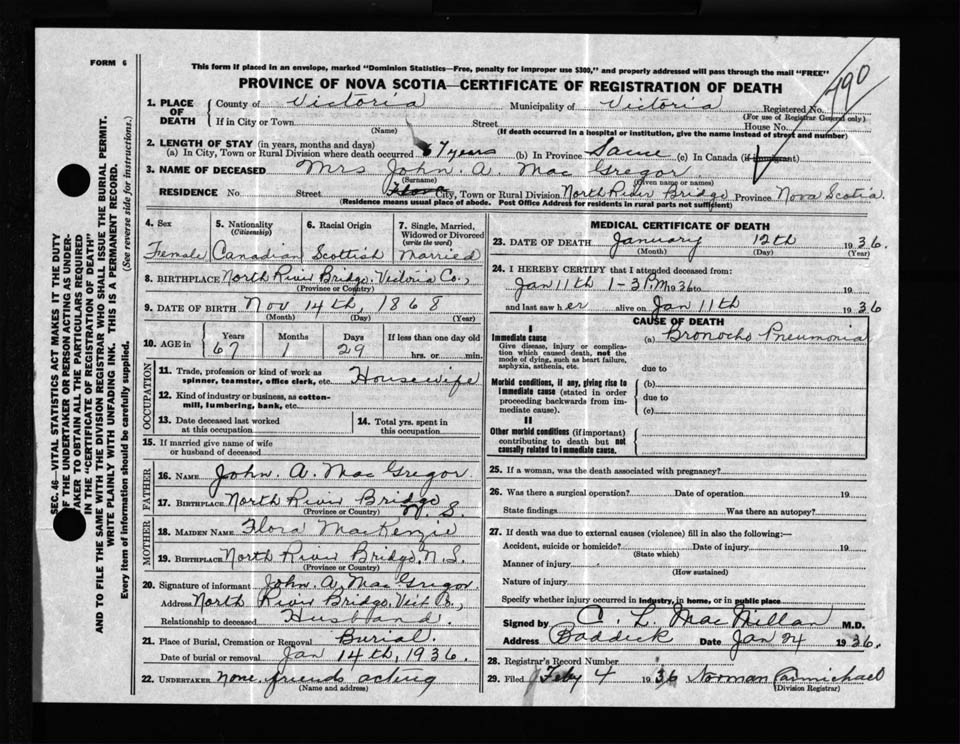 FORM 6
This form if placed in an envelope, marked "Dominion Statistics—Free, penalty for improper use $300," and properly addressed will pass through the mail "FREE"
PROVINCE OF NOVA SCOTIA—CERTIFICATE OF REGISTRATION OF DEATH
490
1. PLACE OF DEATH
County of Victoria Municipality of Victoria Registered No.
(For use of Registrar General only)
If in City or Town Street House No.
(Name) (If death occurred in a hospital or institution, give the name instead of street and number)
2. LENGTH OF STAY (in years, months and days)
(a) In City, Town or Rural Division where death occurred 67 years (b) In Province Same (c) In Canada (if immigrant)
3. NAME OF DECEASED Mrs John. A. Mac Gregor
(Surname) (Given name or names)
RESIDENCE No. Street Flora City, Town or Rural Division North River Bridge Province Nova Scotia.
(Residence means usual place of abode. Post Office Address for residents in rural parts not sufficient)
4. Sex 5. Nationality (Citizenship) 6. Racial Origin 7. Single, Married, Widowed or Divorced (write the word)
Female Canadian Scottish Married
8. BIRTHPLACE North River Bridge. Victoria Co.,
(Province or Country)
9. DATE OF BIRTH Nov 14th, 1868
(Month) (Day) (Year)
10. AGE in Years Months Days If less than one day old
67 1 29 hrs. or min.
OCCUPATION
11. Trade, profession or kind of work as spinner, teamster, office clerk, etc. Housewife
12. Kind of industry or business, as cotton-mill, lumbering, bank, etc.
13. Date deceased last worked at this occupation
14. Total yrs. spent in this occupation
15. If married give name of wife or husband of deceased
FATHER
16. NAME John. A. Mac Gregor.
17. BIRTHPLACE North River Bridge N. S.
(Province or Country)
MOTHER
18. MAIDEN NAME Flora MacKenzie
19. BIRTHPLACE North River Bridge, N. S.
(Province or Country)
20. Signature of informant John. A. Mac Gregor
Address North River Bridge, Vict Co.,
Relationship to deceased Husband.
21. Place of Burial, Cremation or Removal Burial.
Date of burial or removal Jan 14th, 1936.
22. UNDERTAKER none. friends acting
(Name and address)
MEDICAL CERTIFICATE OF DEATH
23. DATE OF DEATH January 12th 1936.
(Month) (Day)
24. I HEREBY CERTIFY that I attended deceased from:
Jan 11th 1-3 P.M. 1936 to 19
and last saw her alive on Jan 11th 1936
CAUSE OF DEATH
I
Immediate cause (a) Broncho Pneumonia
Give disease, injury or complication which caused death, not the mode of dying, such as heart failure, asphyxia, asthenia, etc.
due to
Morbid conditions, if any, giving rise to immediate cause (stated in order proceeding backwards from immediate cause).
(b)
due to
(c)
II
Other morbid conditions (if important) contributing to death but not causally related to immediate cause.
25. If a woman, was the death associated with pregnancy?
26. Was there a surgical operation? Date of operation 19
State findings Was there an autopsy?
27. If death was due to external causes (violence) fill in also the following:—
Accident, suicide or homicide? Date of injury 19
(State which)
Manner of injury
(How sustained)
Nature of injury
Specify whether injury occurred in industry, in home, or in public place
Signed by C. L. MacMillan M.D.
Address Baddeck Date Jan 24 1936.
28. Registrar's Record Number
29. Filed Feby 4 1936 Norman Carmichael
(Division Registrar)
SEC. 46—VITAL STATISTICS ACT MAKES IT THE DUTY
OF THE UNDERTAKER OR PERSON ACTING AS UNDER-
TAKER TO OBTAIN ALL THE PARTICULARS REQUIRED
IN THE "CERTIFICATE OF REGISTRATION OF DEATH"
AND TO FILE THE SAME WITH THE DIVISION REGISTRAR WHO SHALL ISSUE THE BURIAL PERMIT.
WRITE PLAINLY WITH UNFADING INK. THIS IS A PERMANENT RECORD.
Every item of information should be carefully supplied. (See reverse side for instructions.)